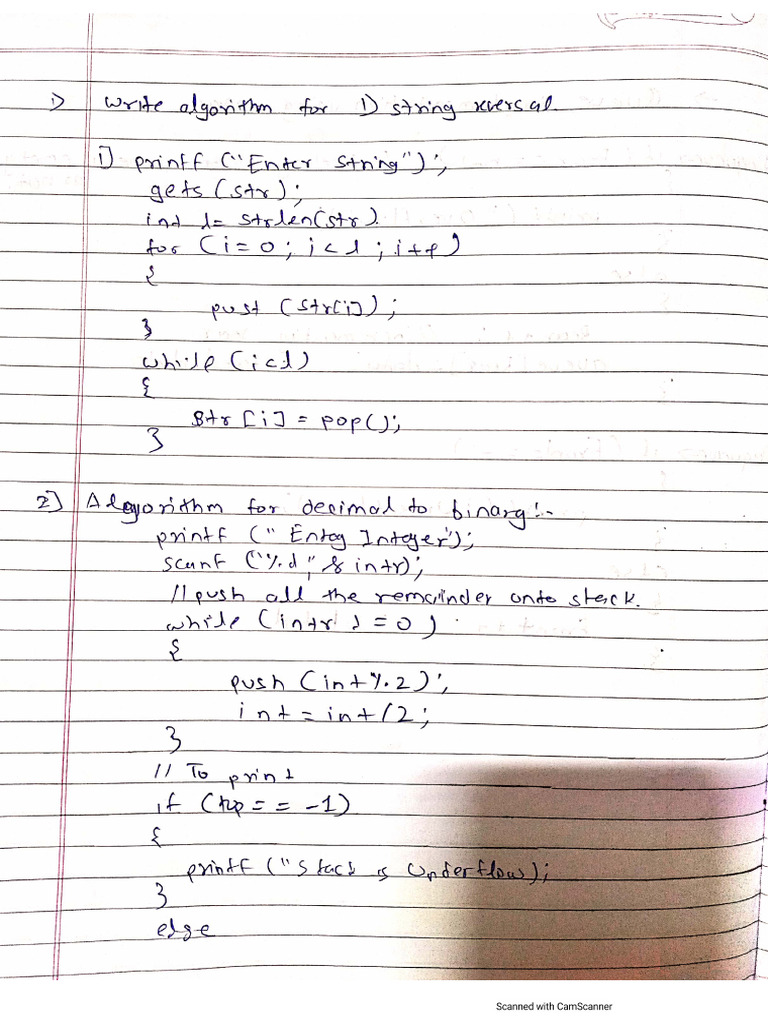 1) Write algorithm for 1) string reversal.
1] printf ("Enter String");
gets (str);
int l= strlen(str).
for (i=0; i<l; i++)
{
push (str[i]);
}
while (i<l)
{
str[i] = pop();
}
2] Algorithm for decimal to binary:-
printf (" Enter Integer");
scanf ("%d", & intr);
// push all the remainder onto stack.
while (intr != 0)
{
push (int % 2);
int = int/2;
}
// To print
if (top == -1)
{
printf ("Stack is Underflow);
}
else
Scanned with CamScanner